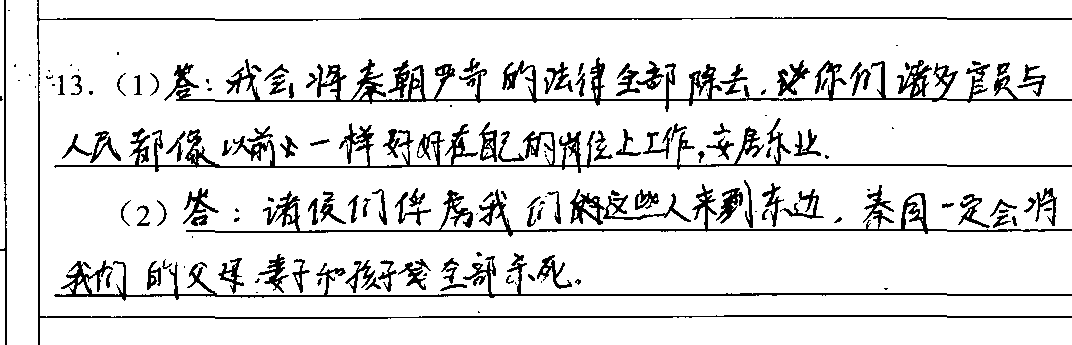 13.（1）答：我会将秦朝严苛的法律全部除去，让你们诸多官员与
人民都像以前一样好好在自己的岗位上工作，安居乐业.
（2）答：诸侯们俘虏我们的这些人来到东边，秦国一定会将
我们的父母妻子和孩子全部杀死。